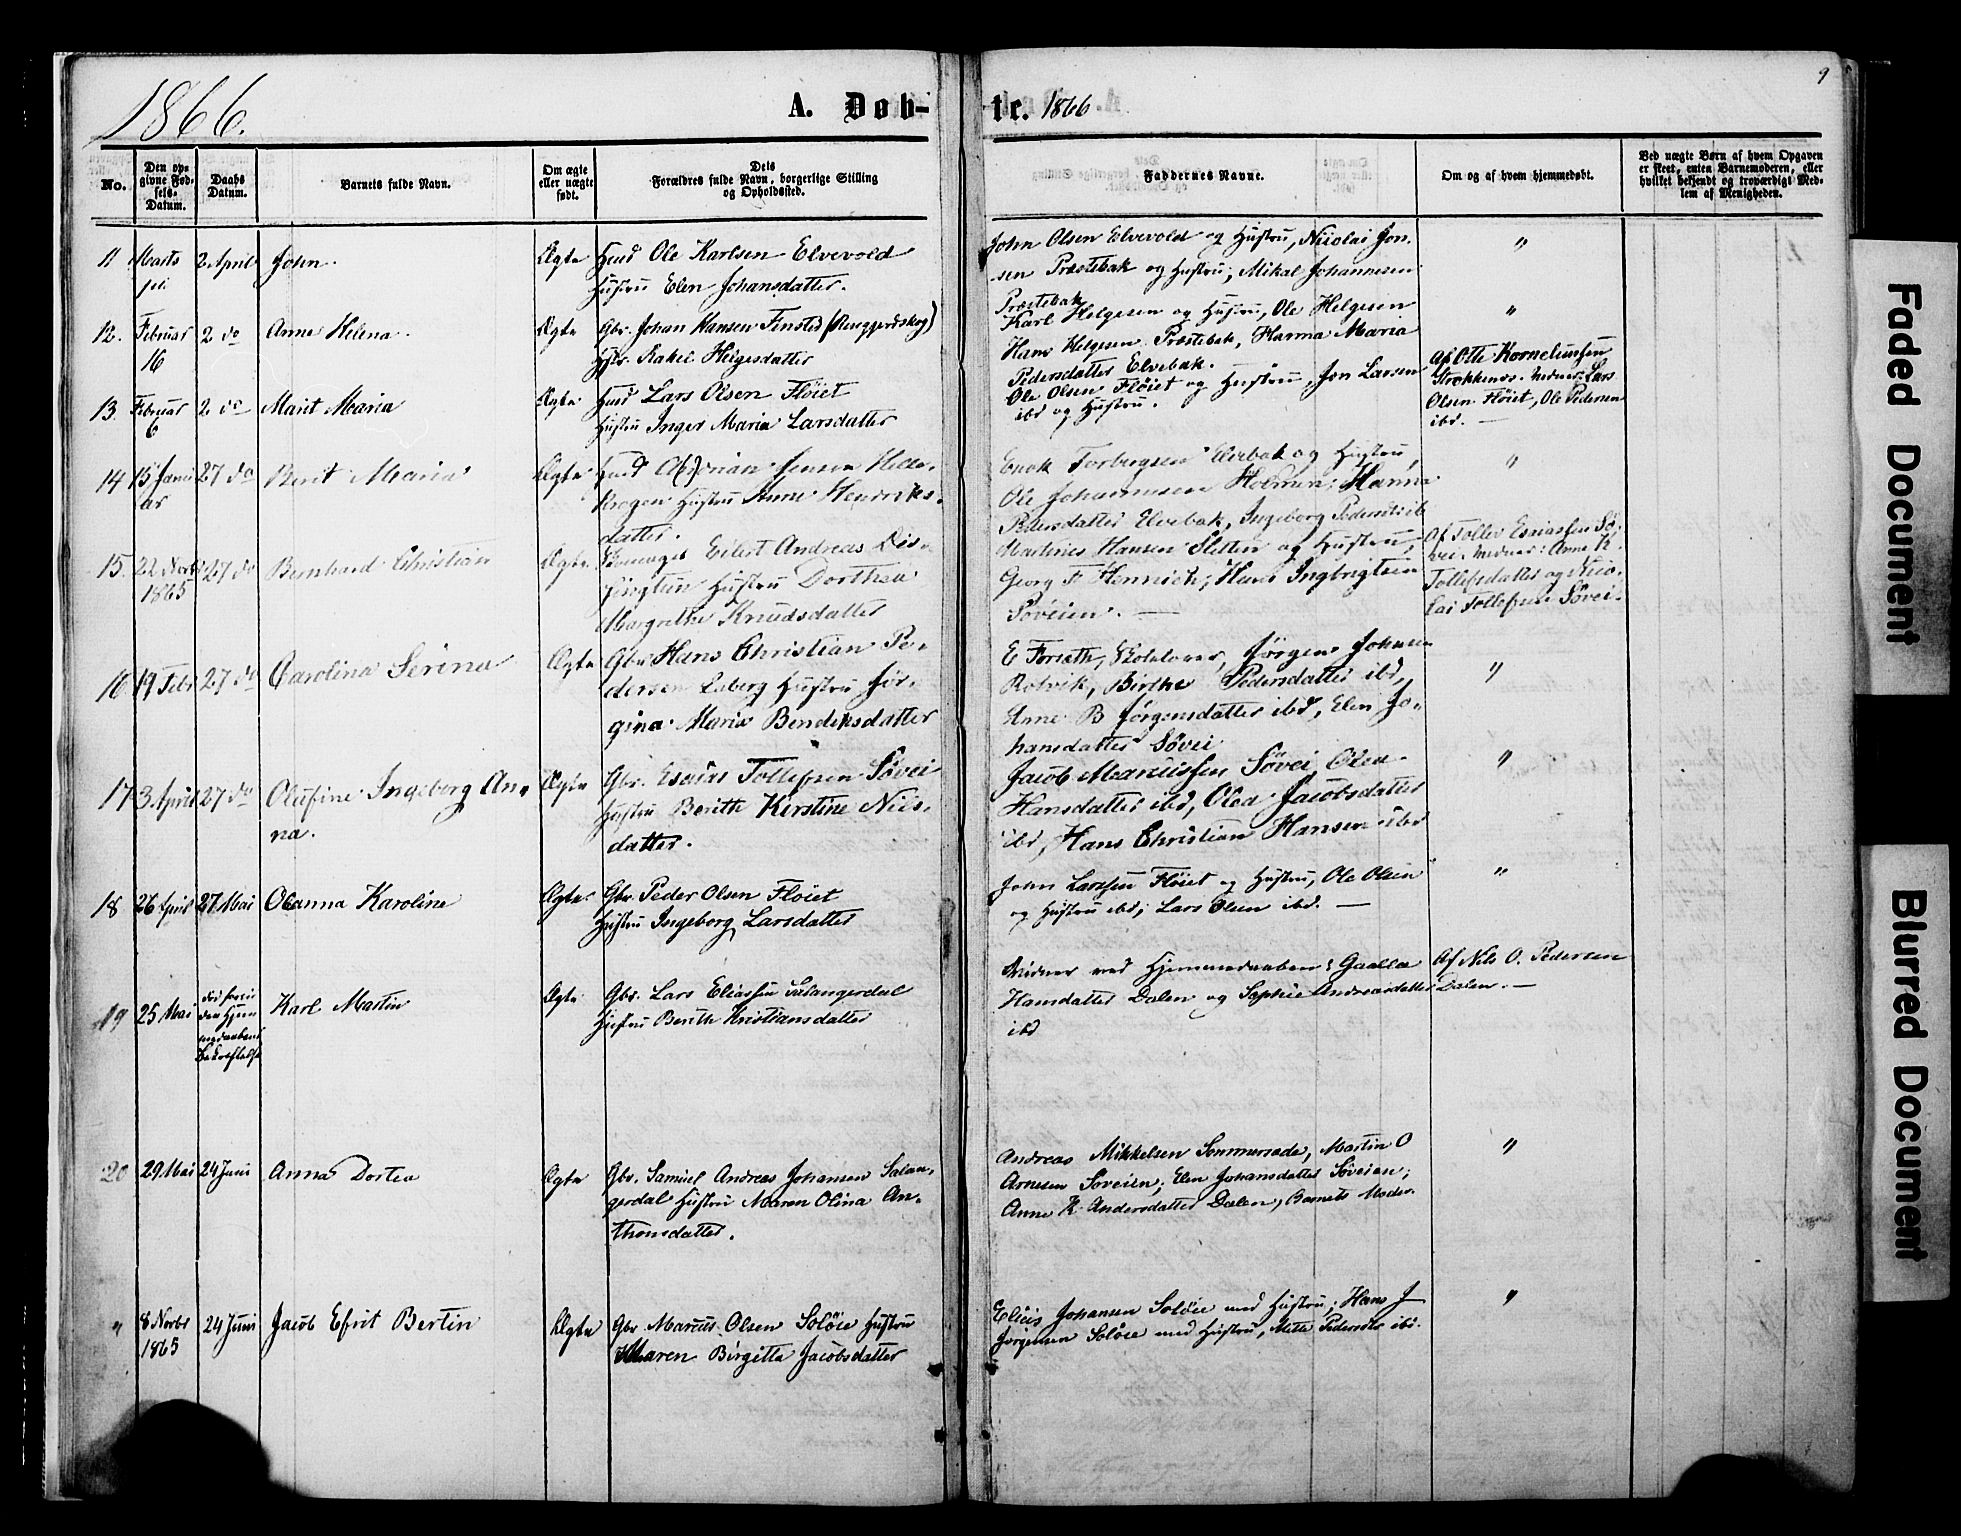 1866.
A. Døb-
te. 1866
9
No.
Den op-
givne Fød-
sels-
Datum.
Daabs
Datum.
Barnets fulde Navn.
Om ægte
eller uægte
født.
Dets
Forældres fulde Navn, borgerlige Stilling
og Opholdssted.
Faddernes Navne.
Om og af hvem hjemmedøbt.
Ved uægte Børn af hvem Opgaven
er skeet, enten Barnemoderen, eller
hvilket bekjendt og troværdigt Med-
lem af Menigheden.
11 Marts 2 April John. Ægte Ole Karlsen Elvevold
Hustru Elen Johansdatter.
John Olsen Elvevold og Hustru, Nicolai Jon-
sen Præstebak og Hustru, Mikal Johannesen
Præstebak
"
12. Februar 2 do Anne Helena. Ægte Gbr. Johan Hansen Finstad
16 Rakel Helgesdatter
Karl Helgesen og Hustru, Ole Helgesen
Hans Helgesen Præstebak, Hanna Maria
Pedersdatter Elvebak.
"
13. Februar 2 do Marit Maria Ægte Lars Olsen Fløiet
6 Hustru Inger Maria Larsdatter
Ole Olsen Fløiet og Hustru, Jon Larsen
ibd og Hustru.
Af Otte Korneliussen
Lars
Olsen Fløiet, Ole Pedersen
ibd. —
14 15 Janu 27 do Berit Maria Ægte Jenson
ar Hustru Anne Hendriks-
datter.
Enok Torbergsen Elvebak og Hustru,
Ole Johannesen Holmen, Hanna
Pedersdatter Elvebak, Ingeborg
"
15. 22 Novbr 27 do Bernhard Christian Ægte Eilert Andreas
1865 Hustru Dorthea
Margrethe Knudsdatter
Martines Hansen Sletten og Hustru,
Georg F. Henrich, Hans Ingbrigtsen
Søveien. —
Af Tollef Esaiassen Sø-
vei. Anne K.
Tollefsdatter og Nico-
lai Tollefsen Søvei.
16 19 Febr 27 do Carolina Serina Ægte Gbr Hans Christian Pe-
dersen Laberg Hustru Jør-
gina Maria Bendiksdatter
E Forseth, Jørgen Johnsen
Rotvik, Birthe Pedersdatter ibd,
Anne B Jørgensdatter ibd, Elen Jo-
hansdatter Søvei
"
17 3 April 27 do Olufine Ingeborg An- Ægte Gbr. Esaias Tollefsen Søvei
na. Hustru Berith Kirstine Nils-
datter.
Jacob Marcussen Søvei, Olea
Hansdatter ibd, Olea Jacobsdatter
ibd, Hans Christian Hansen ibd
"
18 26 April 27 Mai Oleanna Karoline Ægte Gbr. Peder Olsen Fløiet
Hustru Ingeborg Larsdatter
John Larssen Fløiet og Hustru, Ole Olsen
og Hustru ibd, Lars Olsen ibd. —
"
19 25 Mai Karl Martin Ægte Gbr. Lars Eliassen Salangerdal
Hustru Berith Kristiansdatter
Vidner ved Hjemmedaaben:
Hansdatter Dalen og Sophie Andreasdatter
ibd
Af Nils O. Pedersen
Dalen. —
20 29 Mai 24 Juni Anna Dortea Ægte Gbr. Samuel Andreas Johansen Salan-
gerdal Hustru Maren Olina An-
thonsdatter.
Andreas Mikkelsen Sommersæde, Martin O
Arnesen Søveien, Elen Johansdatter Søveien;
Anne K. Andersdatter Dalen, Barnets Moder.
"
" 8 Novbr 24 Juni Jacob Efrit Bertin Ægte Gbr. Marcus Olsen Soløie Hustru
1865 Maren Birgitta Jacobsdatter
Elias Johansen Soløie med Hustru, Hans J
Jørgensen Soløie med Hustru, Mette ibd.
"
Faded Document
Blurred Document